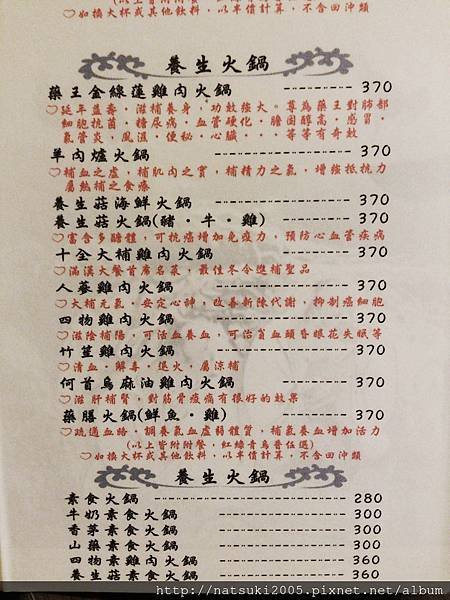 (以上皆附附餐,紅綠青烏普任選)
♡如換大杯或其他飲料,以半價計算,不含回沖類
養生火鍋
藥王金線蓮雞肉火鍋 ---------- 370
♡延年益壽,滋補養身,功效強大。尊為藥王對肺部
細胞抗菌、糖尿病、血管硬化、膽固醇高、感冒、
氣管炎、風濕、便秘、心臟...等等有奇效
羊肉爐火鍋 ---------- 370
♡補血之虛,補肌肉之實,補精力之氣,增強抵抗力
屬熱補之食療
養生菇海鮮火鍋 ---------- 370
養生菇火鍋(豬、牛、雞) ---------- 370
♡富含多醣體,可抗癌增加免疫力,預防心血管疾病
十全大補雞肉火鍋 ---------- 370
♡滿漢大餐首席名菜,最佳冬令進補聖品
人蔘雞肉火鍋 ---------- 370
♡大補元氣、安定心神,改善新陳代謝,抑制癌細胞
四物雞肉火鍋 ---------- 370
♡滋陰補陽,可活血養血,可治貧血頭昏眼花失眠等
竹笙雞肉火鍋 ---------- 370
♡清血、解毒、退火,屬涼補
何首烏麻油雞肉火鍋 ---------- 370
♡滋肝補腎,對筋骨痠痛有很好的效果
藥膳火鍋(鮮魚、雞) ---------- 370
♡疏通血路,調養氣血虛弱體質,補氣養血增加活力
(以上皆附附餐,紅綠青烏普任選)
♡如換大杯或其他飲料,以半價計算,不含回沖類
養生火鍋
素食火鍋 ---------- 280
牛奶素食火鍋 ---------- 300
香茅素食火鍋 ---------- 300
山藥素食火鍋 ---------- 300
四物素雞肉火鍋 ---------- 360
養生菇素食火鍋 ---------- 360
http://natsuki2005.pixnet.net/album